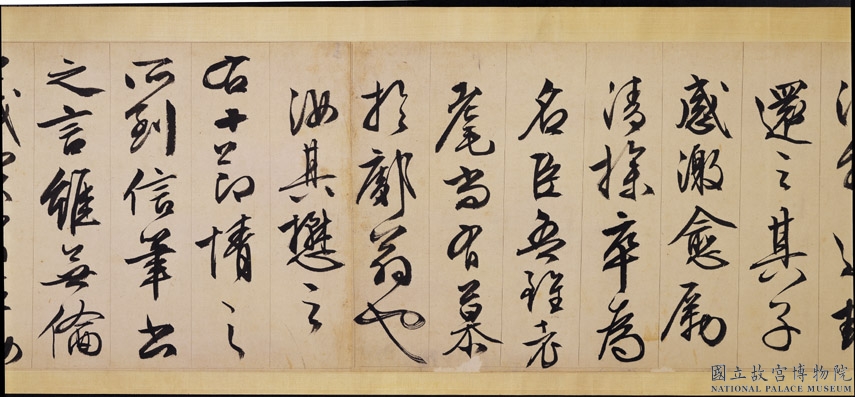 還之其子
感激愈勵
清操卒為
名臣吾雖老
耄尚有慕
於鄺翁也
汝其懋之
右十節情之
所到信筆書
之言雖無倫
國立故宮博物院
NATIONAL PALACE MUSEUM